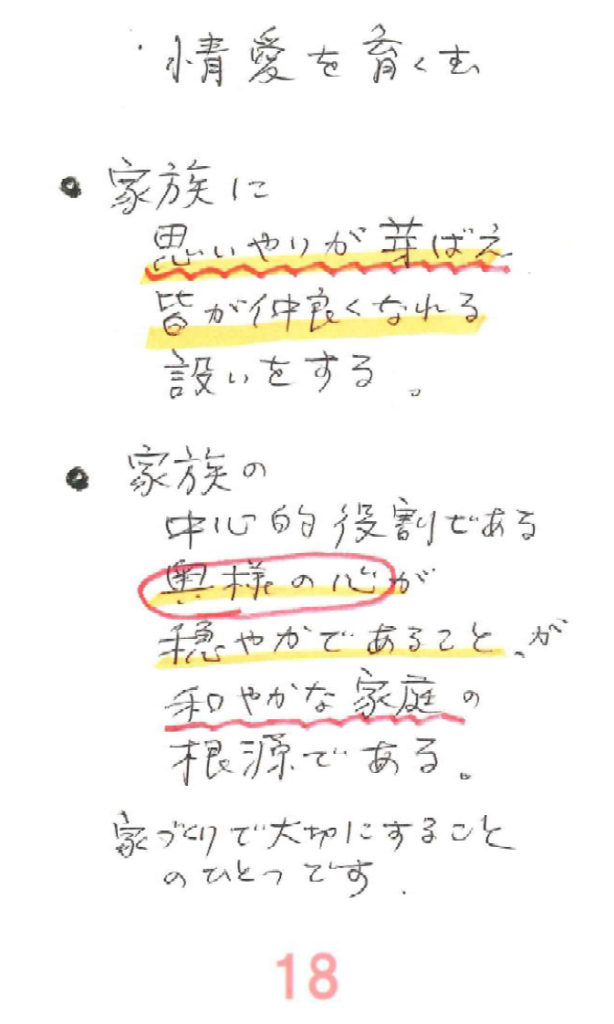 ・情愛を育くむ
● 家族に
思いやりが芽ばえ
皆が仲良くなれる
設いをする。
● 家族の
中心的役割である
奥様の心が
穏やかであること、が
和やかな家庭の
根源である。
家づくりで大切にすること
のひとつです.
18